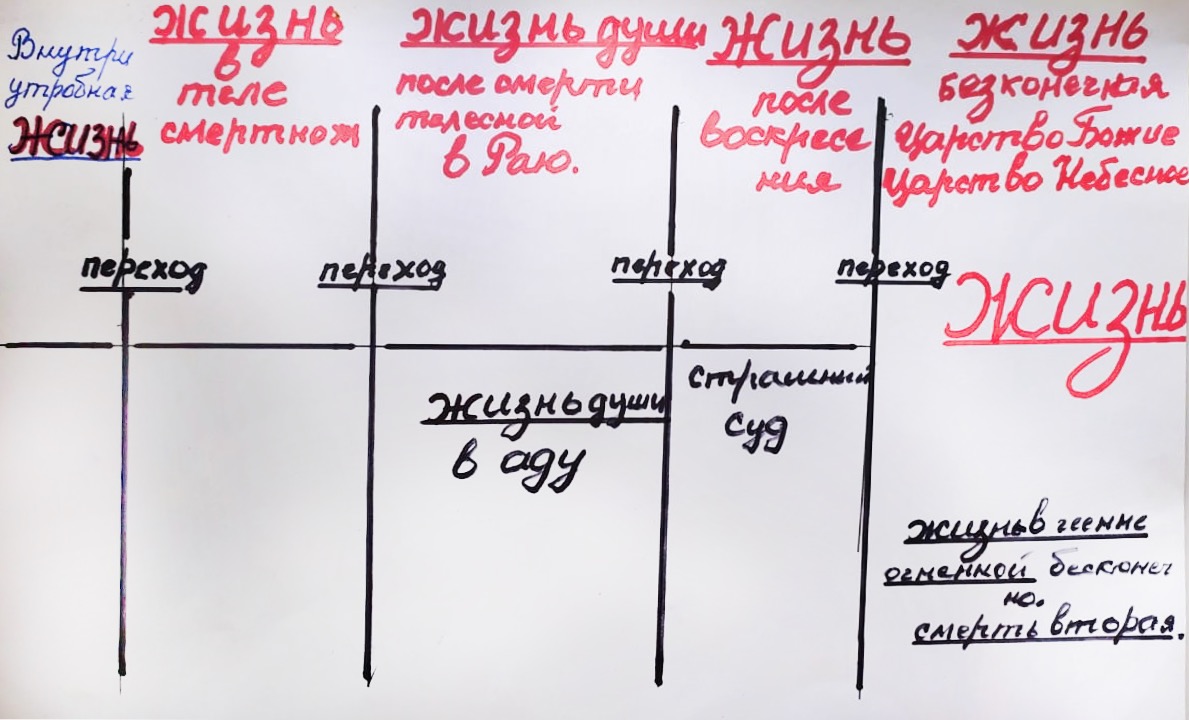 Внутри
утробная
жизнь
жизнь
в
теле
смертном
жизнь души
после смерти
телесной
в Раю.
жизнь
после
воскресе
ния
жизнь
безконечная
Царство Божие
Царство Небесное
переход
переход
переход
переход
жизнь
жизнь души
в аду
страшный
суд
жизнь в геенне
огненной бесконеч
но.
смерть вторая.